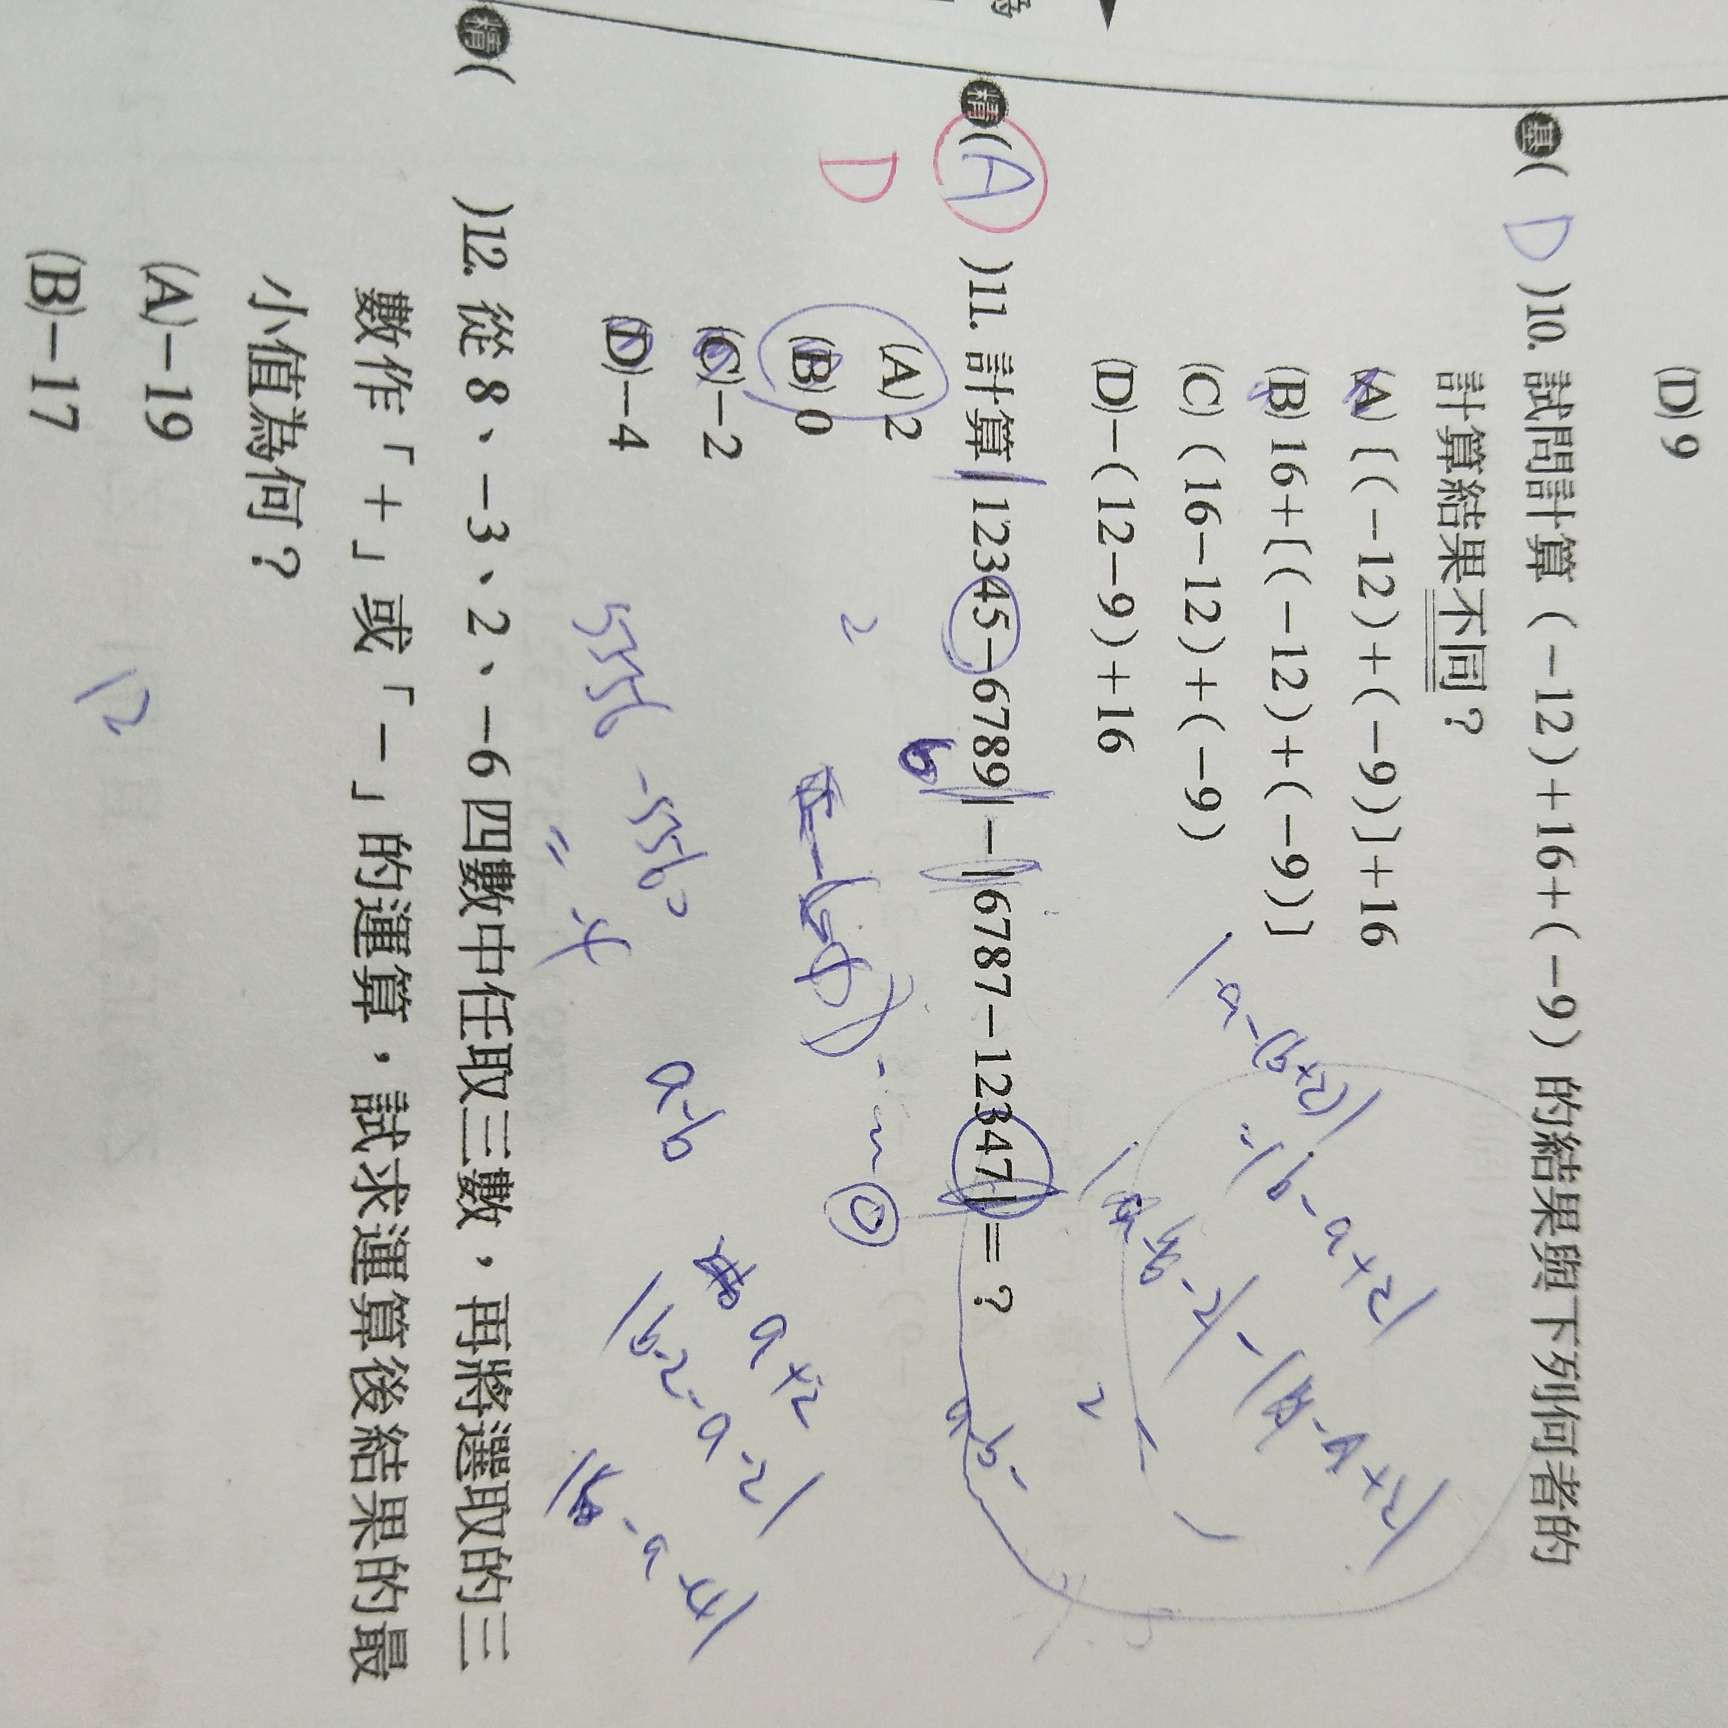 (D) 9
基( D )10. 試問計算(-12)+16+(-9)的結果與下列何者的
計算結果不同？
(A)〔(-12)+(-9)〕+16
(B) 16+〔(-12)+(-9)〕
(C)(16-12)+(-9)
(D)-(12-9)+16
|a-(b+2)|
=|b-a+2|
精( A )11. 計算|12345-6789|-|6787-12347|=？
D
(A) 2
(B) 0
(C)-2
(D)-4
5556-5560
=-4
a-b
a+2
|b-2-a-2|
精( )12. 從 8、-3、2、-6 四數中任取三數，再將選取的三
數作「+」或「-」的運算，試求運算後結果的最
小值為何？
(A)-19
(B)-17
12